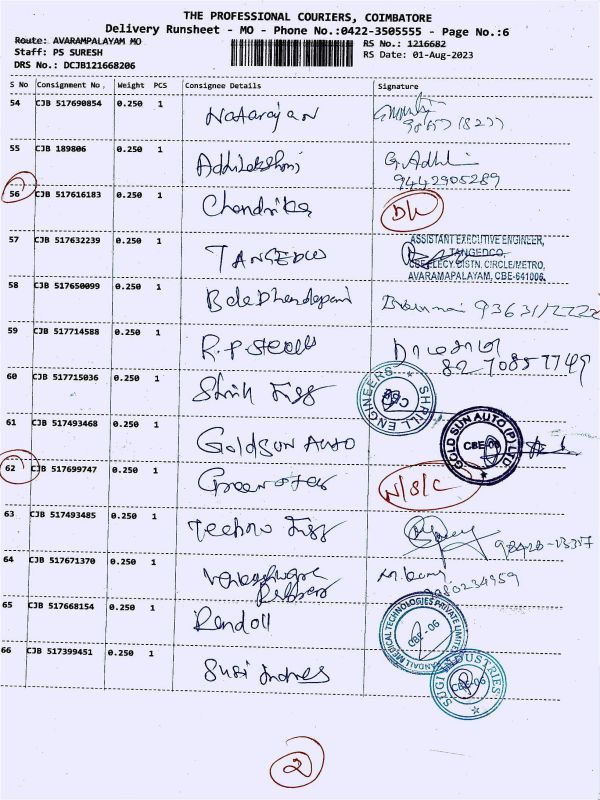 THE PROFESSIONAL COURIERS, COIMBATORE
Delivery Runsheet - MO - Phone No.:0422-3505555 - Page No.:6
Route: AVARAMPALAYAM MO
RS No.: 1216682
Staff: PS SURESH
RS Date: 01-Aug-2023
DRS No.: DCJB121668206
S No Consignment No. Weight PCS Consignee Details Signature
54 CJB 517690854 0.250 1 Natarajan
55 CJB 189806 0.250 1 Adhilakshmi G. Adhi
9442905289
56 CJB 517616183 0.250 1 Chandrika DL
57 CJB 517632239 0.250 1 TANGEDCO ASSISTANT EXECUTIVE ENGINEER,
TANGEDCO,
CBE ELECY.DISTN. CIRCLE/METRO,
AVARAMPALAYAM, CBE-641006.
58 CJB 517650099 0.250 1 BalaDhandapani
59 CJB 517714588 0.250 1 R.P Steells
82 70857749
60 CJB 517715036 0.250 1 SHRILL ENGINEERS
61 CJB 517493468 0.250 1 GOLDSUN AUTO GOLD SUN AUTO (P) LTD CBE-06
62 CJB 517699747 0.250 1 N/S/C
63 CJB 517493485 0.250 1 Techno Engg
64 CJB 517671370 0.250 1 Venkateshwara
Rubbers
65 CJB 517668154 0.250 1 Randall RANDALL MEDICAL TECHNOLOGIES PRIVATE LIMITED CBE-06
66 CJB 517399451 0.250 1 Sugi Indres SUGI INDUSTRIES CBE-06
2